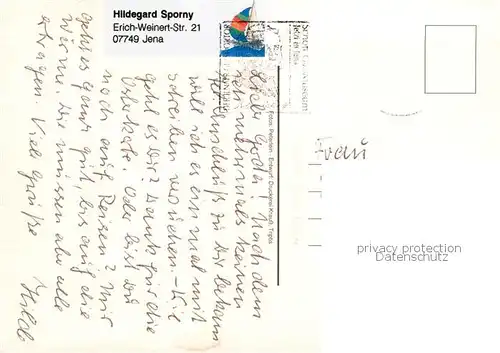 Hildegard Sporny
Erich-Weinert-Str. 21
07749 Jena
Liebe Gerda! Nachdem
ich mehrmals keinen
Anschluß zu Dir bekam
will ich es einmal mit
schreiben versuchen. - Wie
geht es Dir? Dank für die
Osterkarte. Oder bist Du
noch auf Reisen? Mir
geht es ganz gut, bis auf die
Wärme. Die müssen aber alle
ertragen. Viele Grüße
Hilde
Fotos: Petersen - Entwurf: Druckerei Knauth, Triptis
Frau
privacy protection
Datenschutz